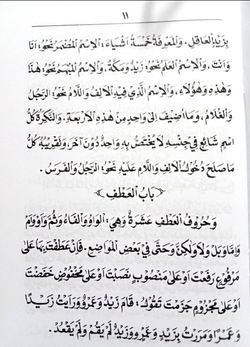 ١١
بِزَيْدٍ الْعَاقِلِ. وَالْمَعْرِفَةُ خَمْسَةُ أَشْيَاءَ: اَلْاِسْمُ الْمُضْمَرُ نَحْوُ: أَنَا
وَأَنْتَ. وَالْاِسْمُ الْعَلَمُ نَحْوُ: زَيْدٌ وَمَكَّةُ. وَالْاِسْمُ الْمُبْهَمُ نَحْوُ: هٰذَا
وَهٰذِهِ وَهٰؤُلَاءِ. وَالْاِسْمُ الَّذِي فِيْهِ الْأَلِفُ وَاللَّامُ نَحْوُ: الرَّجُلُ
وَالْغُلَامُ. وَمَا أُضِيْفَ إِلَى وَاحِدٍ مِنْ هٰذِهِ الْأَرْبَعَةِ. وَالنَّكِرَةُ كُلُّ
اسْمٍ شَائِعٍ فِي جِنْسِهِ لَا يَخْتَصُّ بِهِ وَاحِدٌ دُوْنَ آخَرَ وَتَقْرِيْبُهُ كُلُّ
مَا صَلَحَ دُخُوْلُ الْأَلِفِ وَاللَّامِ عَلَيْهِ نَحْوُ: الرَّجُلُ وَالْفَرَسُ.
﴿بَابُ الْعَطْفِ﴾
وَحُرُوْفُ الْعَطْفِ عَشَرَةٌ وَهِيَ: الْوَاوُ وَالْفَاءُ وَثُمَّ وَأَوْ وَأَمْ
وَإِمَّا وَبَلْ وَلَا وَلٰكِنْ وَحَتَّى فِي بَعْضِ الْمَوَاضِعِ. فَإِنْ عَطَفْتَ بِهَا عَلَى
مَرْفُوْعٍ رَفَعْتَ أَوْ عَلَى مَنْصُوْبٍ نَصَبْتَ أَوْ عَلَى مَخْفُوْضٍ خَفَضْتَ
أَوْ عَلَى مَجْزُوْمٍ جَزَمْتَ تَقُوْلُ: قَامَ زَيْدٌ وَعَمْرٌو وَرَأَيْتُ زَيْدًا
وَعَمْرًا وَمَرَرْتُ بِزَيْدٍ وَعَمْرٍو وَزَيْدٌ لَمْ يَقُمْ وَلَمْ يَقْعُدْ.